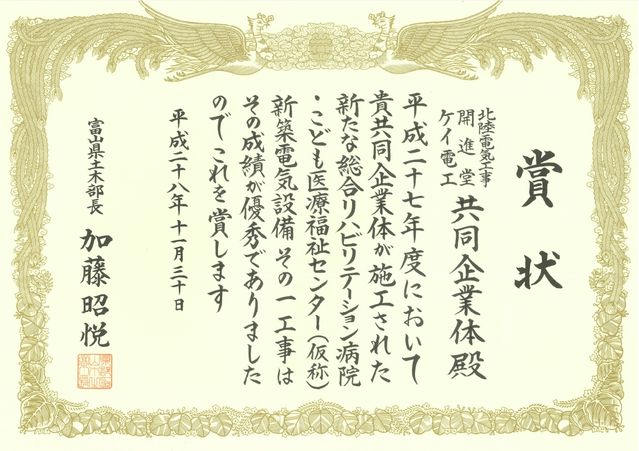 賞状
北陸電気工事
開進堂
ケイ電工
共同企業体殿
平成二十七年度において
貴共同企業体が施工された
新たな総合リハビリテーション病院
・こども医療福祉センター(仮称)
新築電気設備その一工事は
その成績が優秀でありました
のでこれを賞します
平成二十八年十一月三十日
富山県土木部長
加藤昭悦